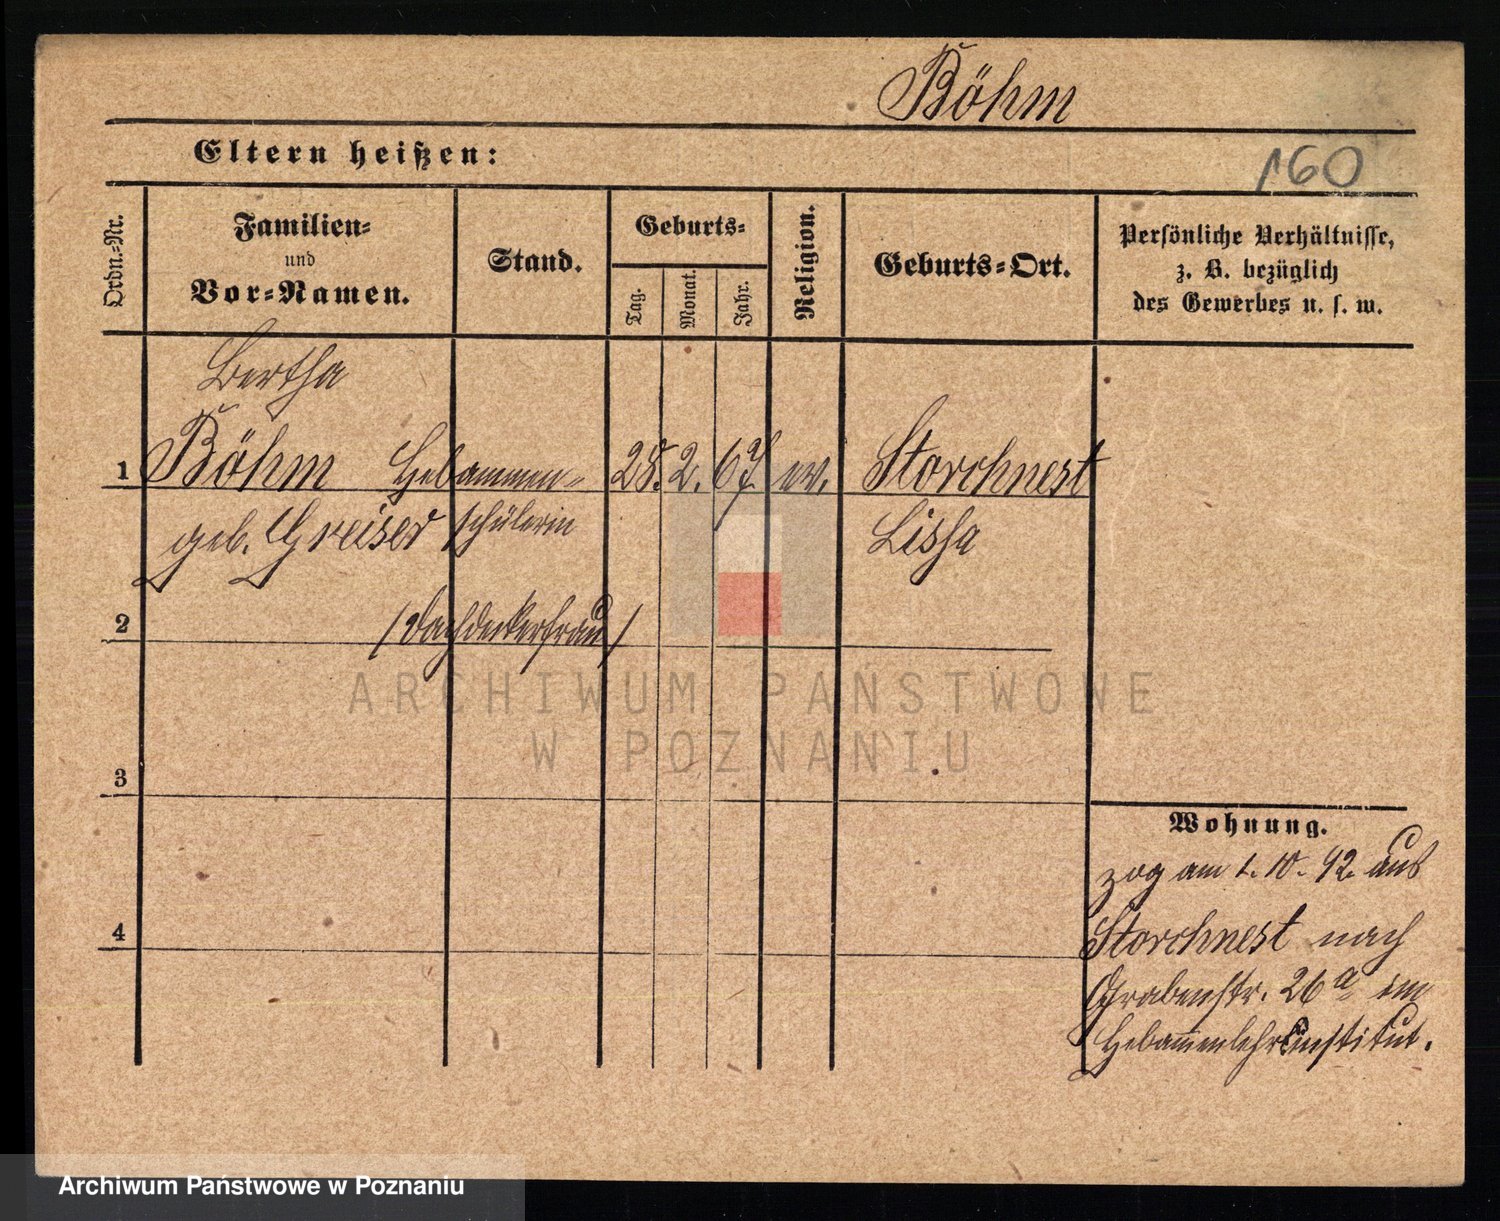 Böhm
Eltern heißen:
160
Ordn.-Nr.
Familien-
und
Vor-Namen.
Stand.
Geburts-
Tag.
Monat.
Jahr.
Religion.
Geburts-Ort.
Persönliche Verhältnisse,
z. B. bezüglich
des Gewerbes u. s. w.
Bertha
1 Böhm Hebammen- 28. 2. 67 ev. Storchnest
geb. Greiser schülerin Lissa
2 (Dachdeckerfrau)
ARCHIWUM PAŃSTWOWE
W POZNANIU
3
Wohnung.
zog am 1. 10. 92. aus
4 Storchnest nach
Grabenstr. 26a im
Hebammenlehrinstitut.
Archiwum Państwowe w Poznaniu